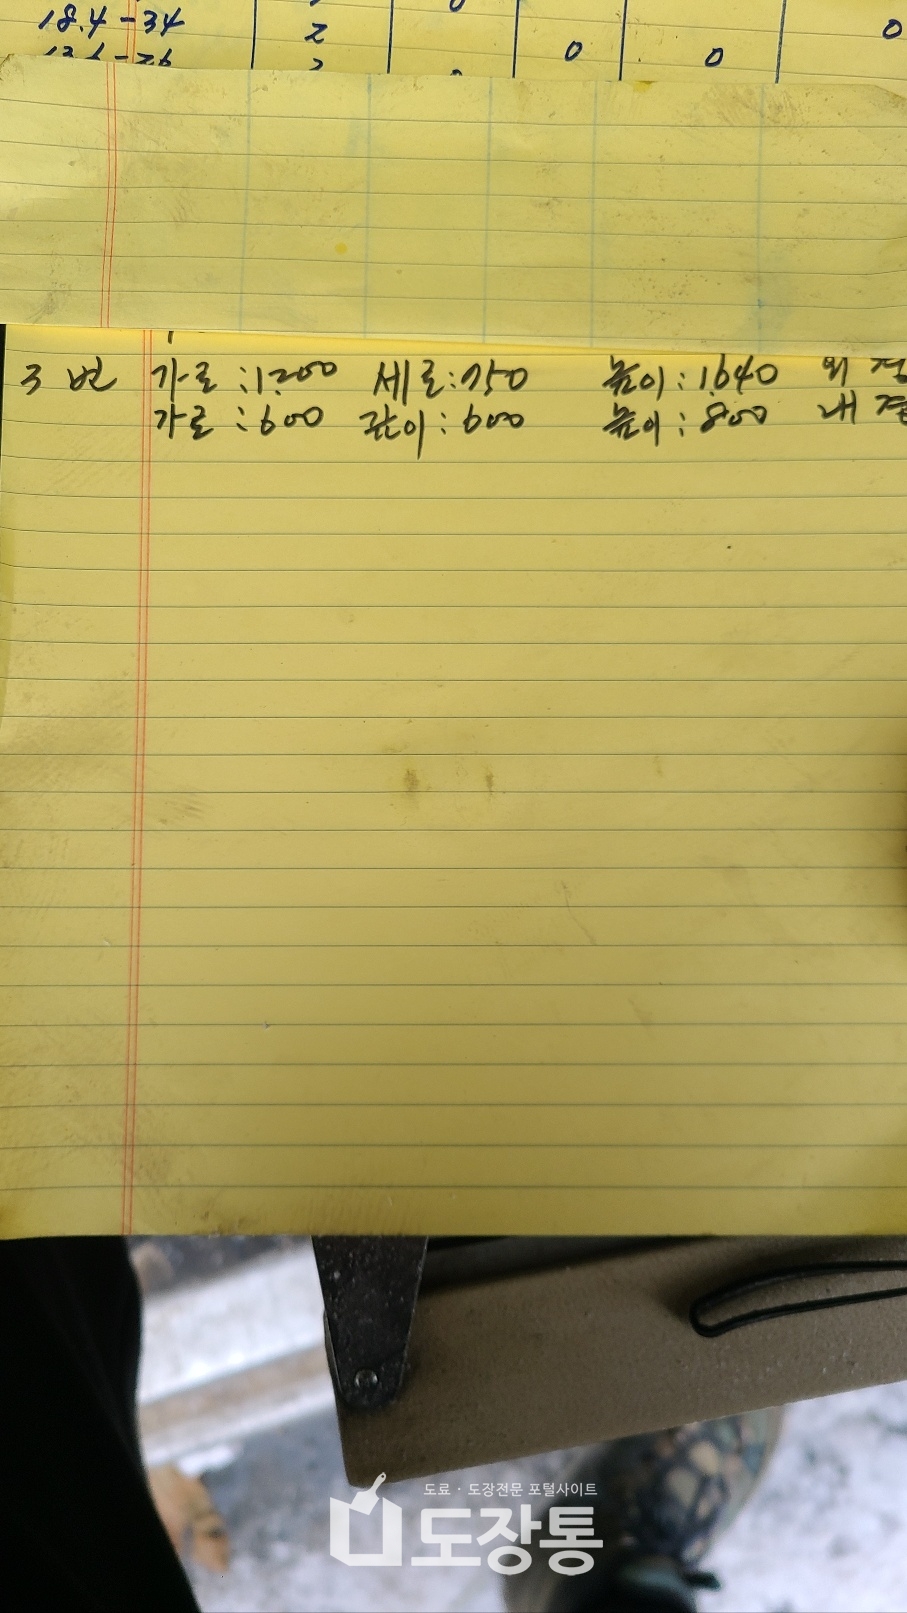 18.4-34 2 0 0 0
3번 가로:1,200 세로:750 높이:1,640 외경
가로:600 깊이:600 높이:800 내경
도료·도장전문 포털사이트
도장통